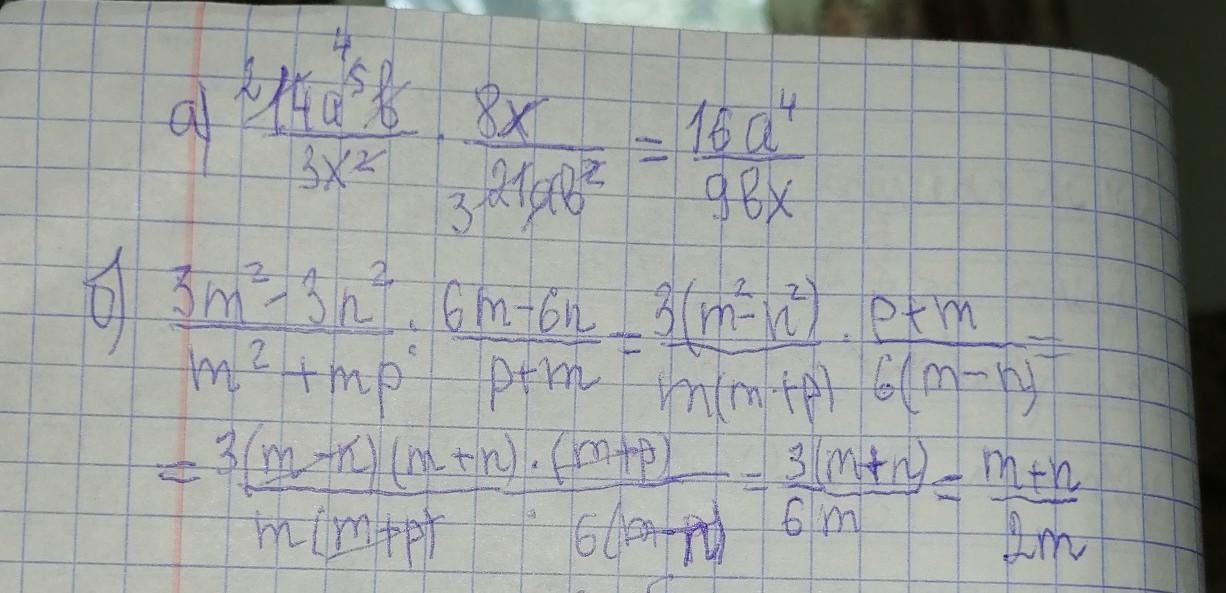 а) 14a⁵b/3x² · 8x/21ab² = 16a⁴/9bx
б) 3m²-3n²/m²+mp : 6m-6n/p+m = 3(m²-n²)/m(m+p) · p+m/6(m-n) =
= 3(m-n)(m+n)·(m+p)/m(m+p) · 6(m-n) = 3(m+n)/6m = m+n/2m